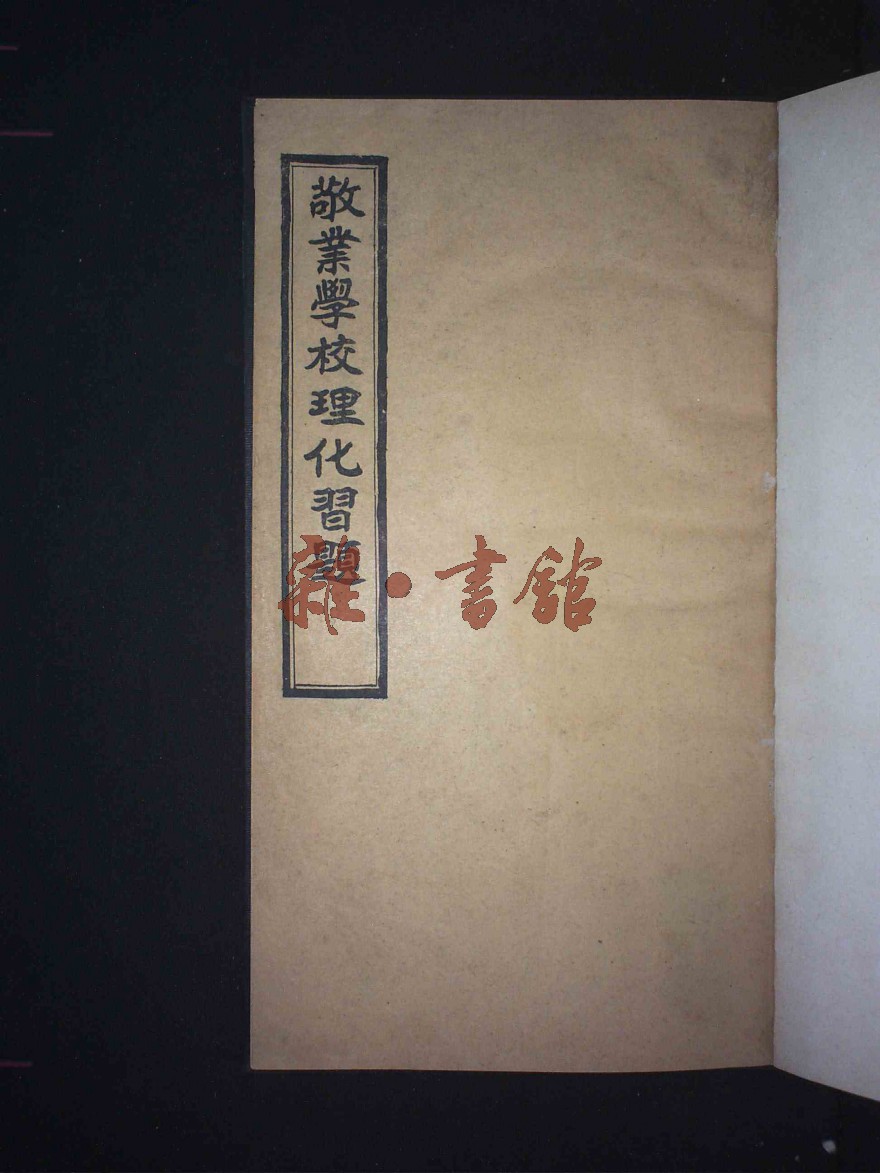 敬業學校理化習題
雜·書館